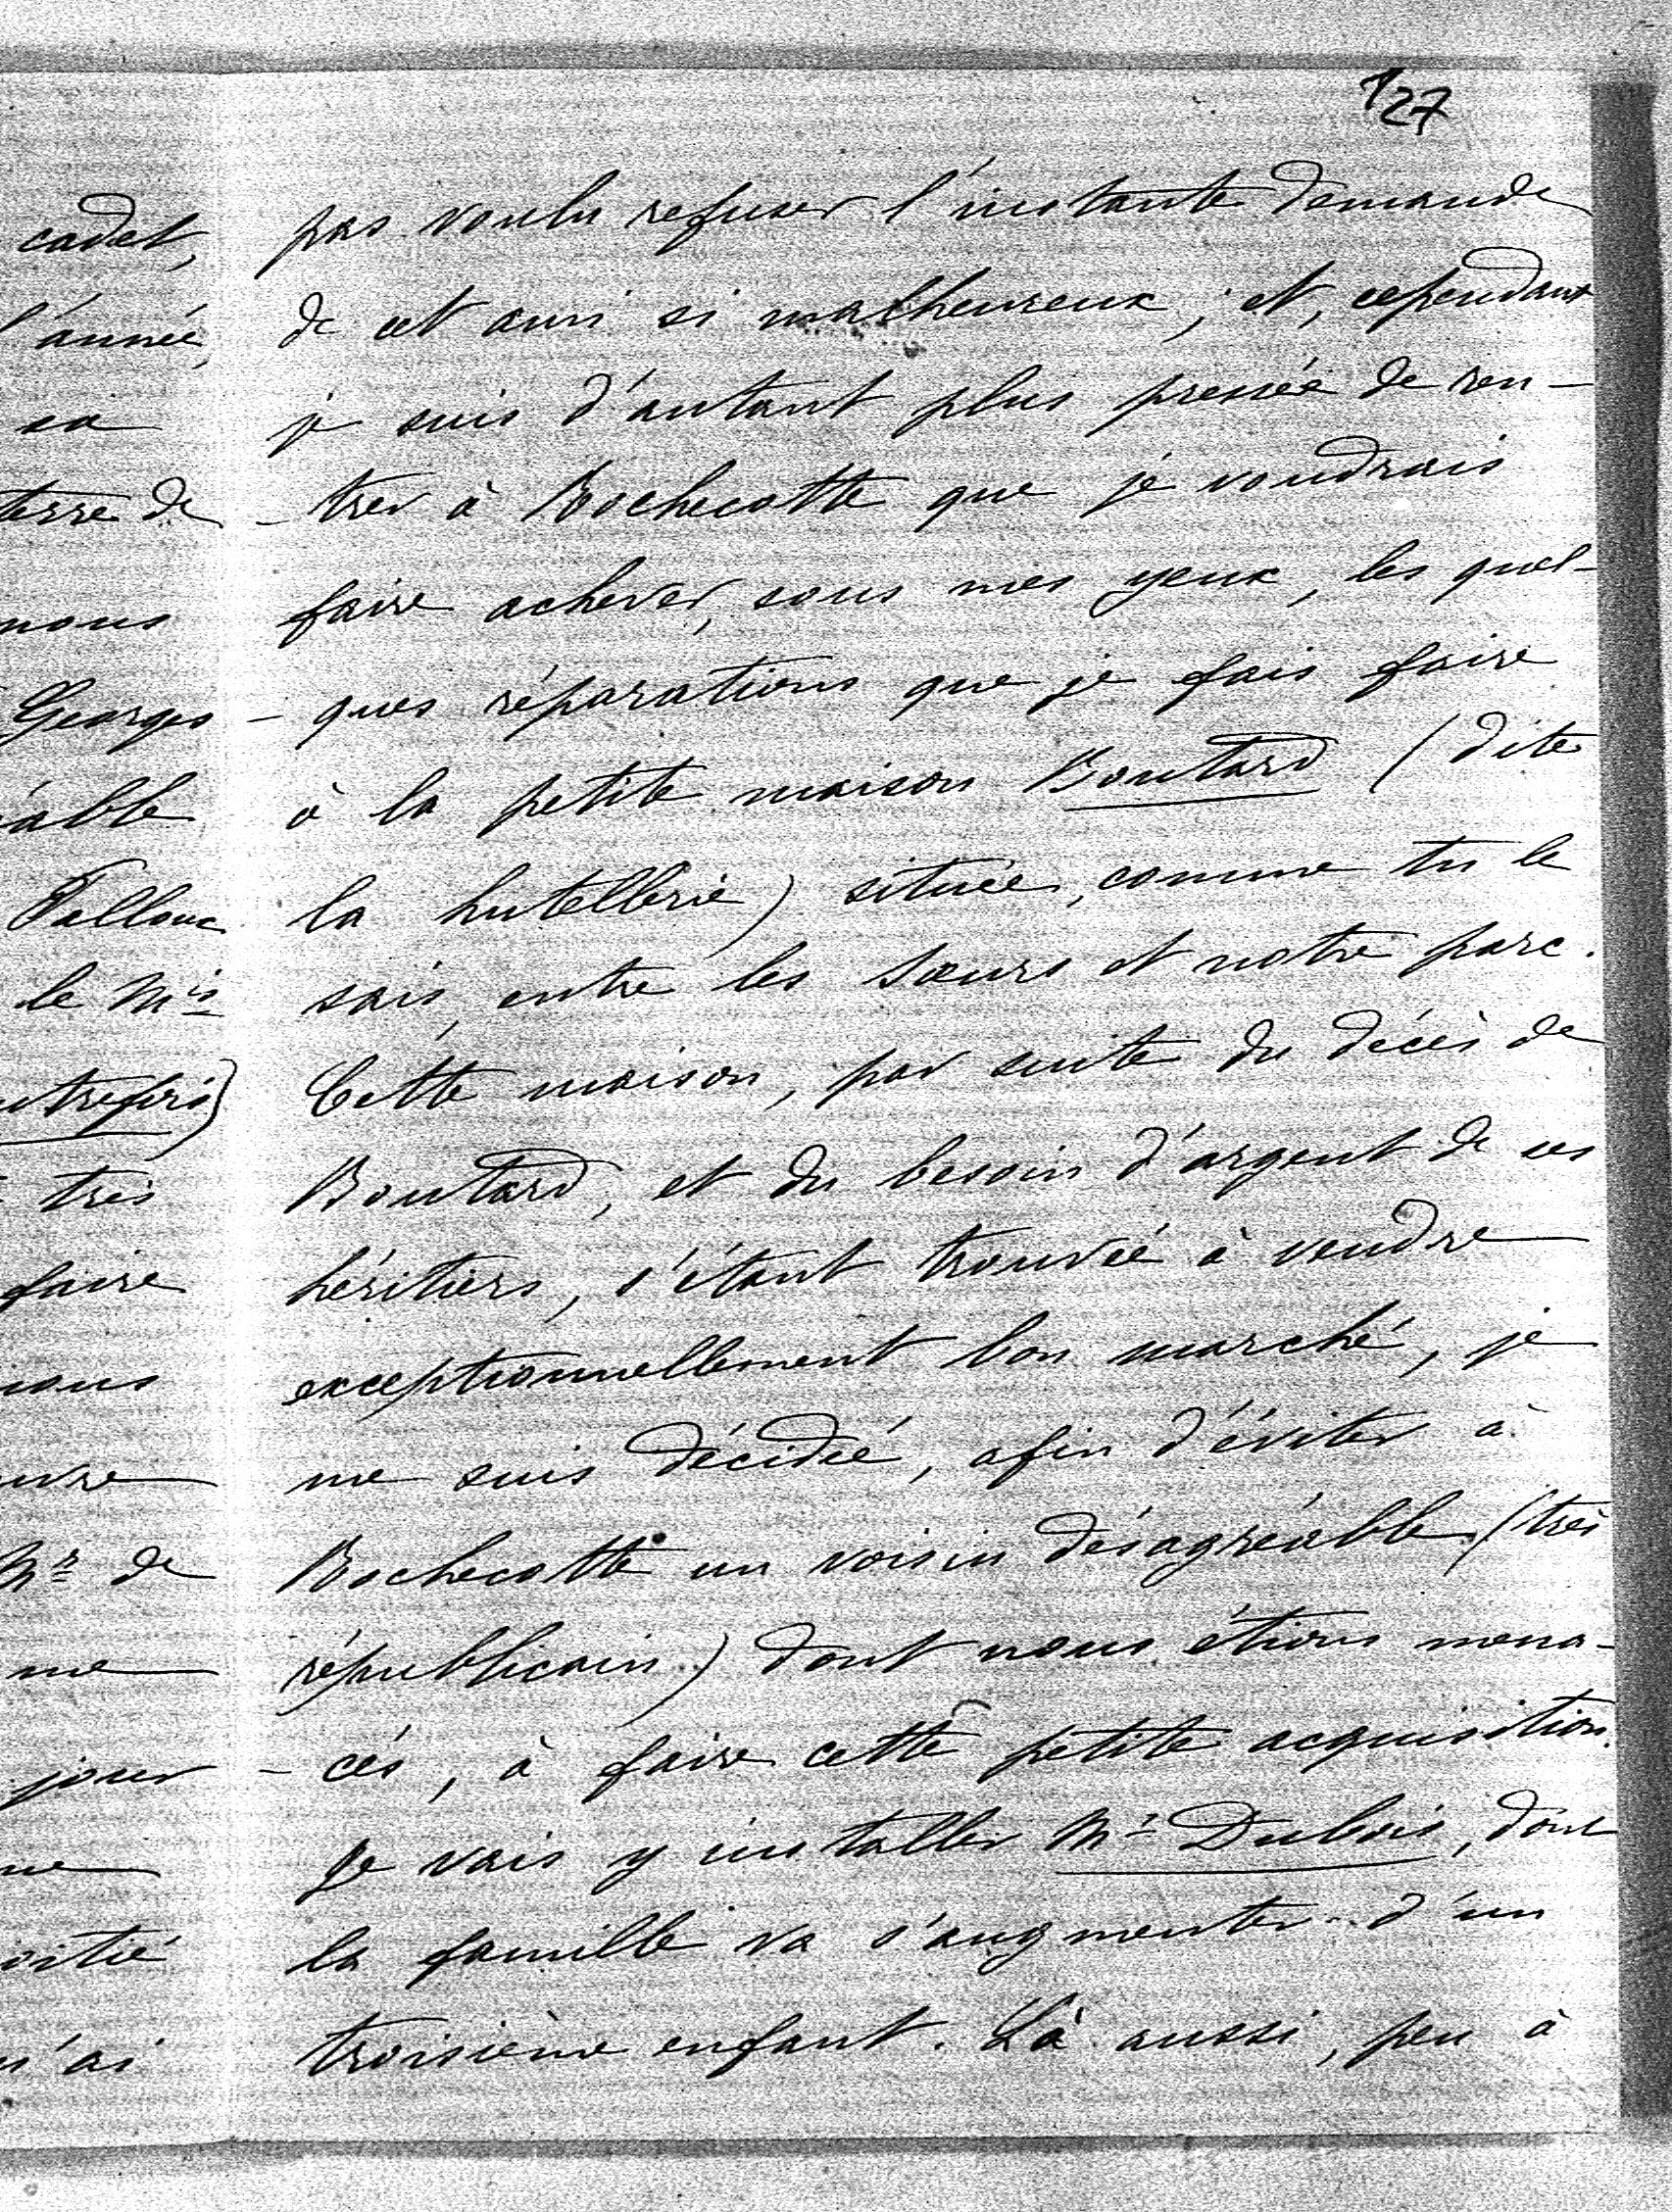 127
pas voulu refuser l'instante demande
de cet ami si malheureux ; et, cependant
je suis d'autant plus pressée de ren-
-trer à Rochecotte que je voudrais
faire achever, sous mes yeux, les quel-
-ques réparations que je fais faire
à la petite maison Boutard (dite
la hutellerie) située, comme tu le
sais, entre les sœurs et notre parc.
Cette maison, par suite du décès de
Boutard, et du besoin d'argent de ses
héritiers, s'étant trouvée à vendre
exceptionnellement bon marché, je
me suis décidée, afin d'éviter à
Rochecotte un voisin désagréable (très
républicain) dont nous étions mena-
-cés, à faire cette petite acquisition.
Je vais y installer Mr Dubois, dont
la famille va s'augmenter d'un
troisième enfant. Là aussi, peu à
cadet,
l'année
sa
terre de
nous
Georges
able
Falloux
le Mis
utrefois)
très
faire
nous
uvre
Mr de
me
jour
ne
oitié
n'ai